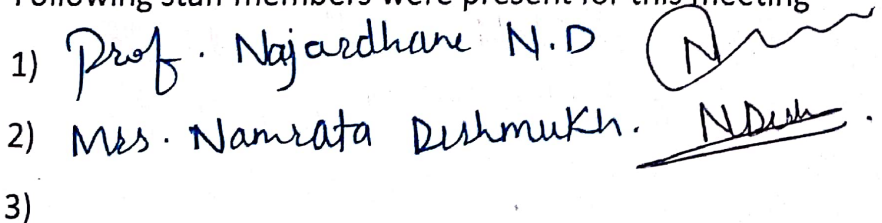 Following staff members were present for this meeting
1) Prof. Najardhane N.D N
2) Mrs. Namrata Deshmukh. NDesh.
3)